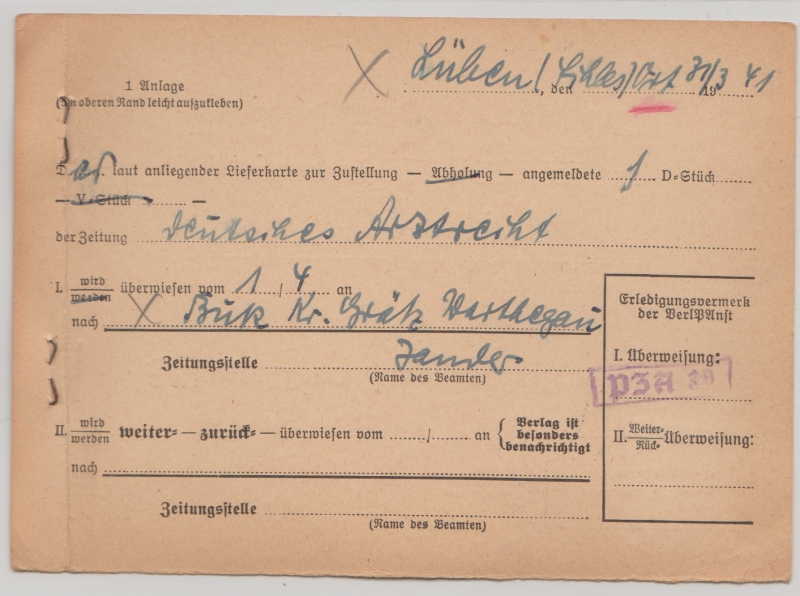 Lüben (Schles) Ort 31/3 41
1 Anlage
, den 19
(Am oberen Rand leicht aufzukleben)
Das laut anliegender Lieferkarte zur Zustellung — Abholung — angemeldete 1 D-Stück
— V-Stück —
der Zeitung deutsches Arztrecht
I. wird
werden überwiesen vom 1 / 4 an
nach Buk Kr. Grätz Warthegau
Zeitungsstelle
(Name des Beamten)
II. wird
werden weiter- — zurück- — überwiesen vom / an { Verlag ist
besonders
benachrichtigt
nach
Zeitungsstelle
(Name des Beamten)
Erledigungsvermerk
der VerlPAnst
I. Überweisung:
PZA
II. Weiter-
Rück- Überweisung: